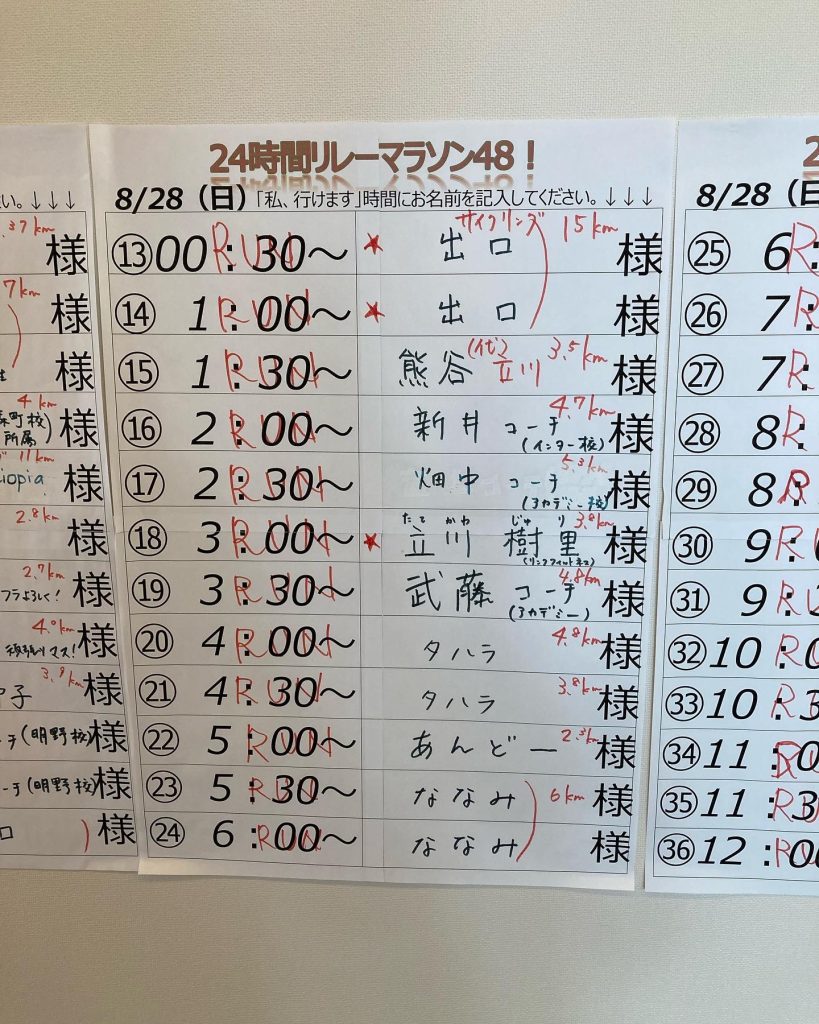 24時間リレーマラソン48！
8/28（日）「私、行けます」時間にお名前を記入してください。↓↓↓
⑬ 00：30～ RUN ★ 出口 サイクリング 15km 様
⑭ 1：00～ RUN ★ 出口 様
⑮ 1：30～ RUN 熊谷 (代) 立川 3.5km 様
⑯ 2：00～ RUN 新井 コーチ (インター校) 4.7km 様
⑰ 2：30～ RUN 畑中 コーチ (アカデミー校) 5.3km 様
⑱ 3：00～ RUN ★ 立川 樹里 たて かわ じゅ り 3.8km 様
⑲ 3：30～ RUN 武藤 コーチ (アカデミー) 4.8km 様
⑳ 4：00～ RUN タハラ 4.8km 様
㉑ 4：30～ RUN タハラ 3.8km 様
㉒ 5：00～ RUN あんどー 2.3km 様
㉓ 5：30～ RUN ななみ 6km 様
㉔ 6：00～ RUN ななみ 様
い。↓↓↓
.37km 様
7km 様
様
4km 町校) 所属 様
11km iopia 様
2.8km 様
2.7km フラよろしく！ 様
4.0km 様
3.8km 子 様
ーチ (明野校) 様
ーチ (明野校) 様
口 様
2
8/28（日
㉕ 6：R
㉖ 7：R
㉗ 7：R
㉘ 8：R
㉙ 8：R
㉚ 9：RU
㉛ 9：RU
㉜ 10：0 R
㉝ 10：3 R
㉞ 11：0 R
㉟ 11：3 R
㊱ 12：00 RU